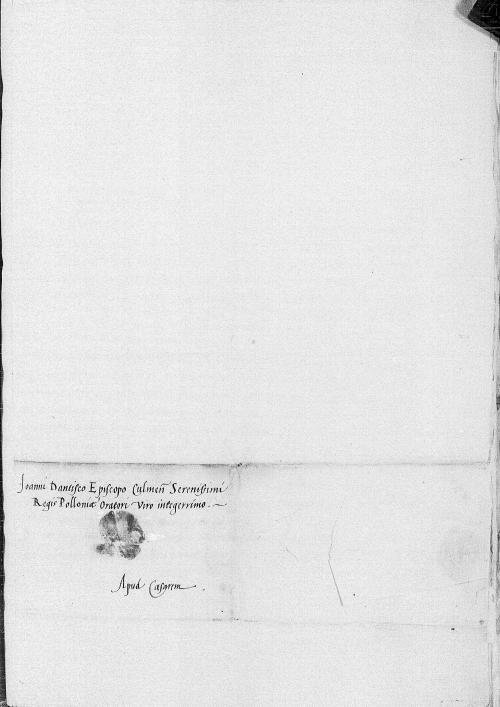 Joanni Dantisco Episcopo Culmen̄ Serenissimi
Regis Polloniæ Oratori Viro integerrimo.
Apud Cæsarem